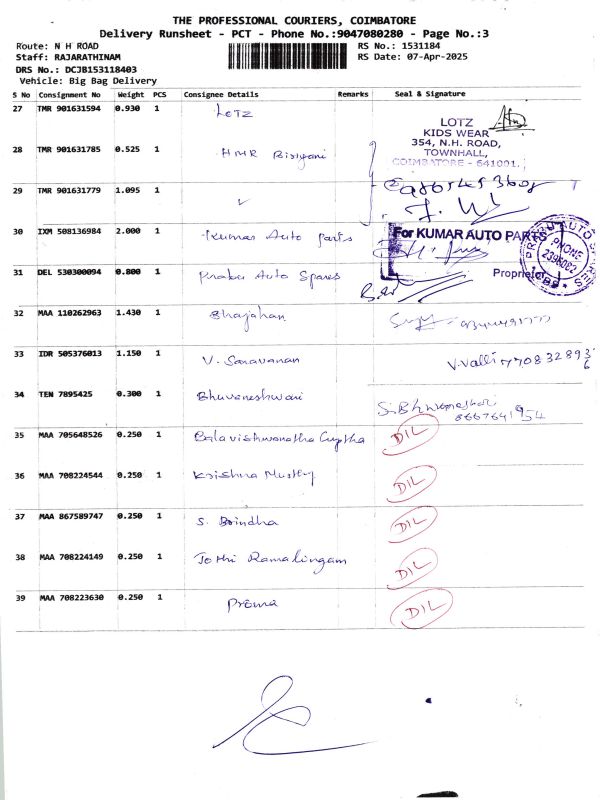 THE PROFESSIONAL COURIERS, COIMBATORE
Delivery Runsheet - PCT - Phone No.:9047080280 - Page No.:3
Route: N H ROAD RS No.: 1531184
Staff: RAJARATHINAM RS Date: 07-Apr-2025
DRS No.: DCJB153118403
Vehicle: Big Bag Delivery
S No Consignment No Weight PCS Consignee Details Remarks Seal & Signature
27 TMR 901631594 0.930 1 LOTZ
LOTZ
KIDS WEAR
354, N.H. ROAD,
TOWNHALL,
COIMBATORE - 641001.
28 TMR 901631785 0.525 1 HMR Biriyani
29 TMR 901631779 1.095 1
30 IXM 508136984 2.000 1 Kumar Auto parts
For KUMAR AUTO PARTS
Proprietor
31 DEL 530300094 0.800 1 Prabu Auto Spares
PRABU AUTO SPARES
PHONE
32 MAA 110262963 1.430 1 Bhajahan
33 IDR 505376013 1.150 1 V. Saravanan V. Valli 7708328936
34 TEN 7895425 0.300 1 Bhuvaneshwari S. Bhuvaneshwari
8667641954
35 MAA 705648526 0.250 1 Balavishwanatha Guptha DIL
36 MAA 708224544 0.250 1 Krishna DIL
37 MAA 867589747 0.250 1 S. Brindha DIL
38 MAA 708224149 0.250 1 Jothi Ramalingam DIL
39 MAA 708223630 0.250 1 Proma DIL